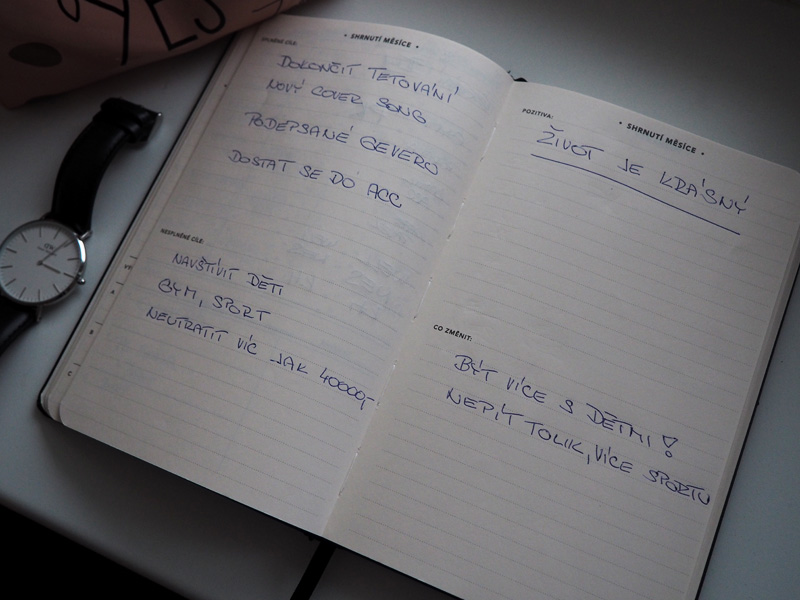 YES
• SHRNUTÍ MĚSÍCE •
SPLNĚNÉ CÍLE:
DOKONČIT TETOVÁNÍ
NOVÝ COVER SONG
PODEPSANÉ GEVERO
DOSTAT SE DO ACC
NESPLNĚNÉ CÍLE:
NAVŠTÍVIT DĚTI
GYM, SPORT
NEUTRATIT VÍC JAK 40000,-
• SHRNUTÍ MĚSÍCE •
POZITIVA:
ŽIVOT JE KRÁSNÝ
CO ZMĚNIT:
BÝT VÍCE S DĚTMI!
NEPÍT TOLIK, VÍCE SPORTU